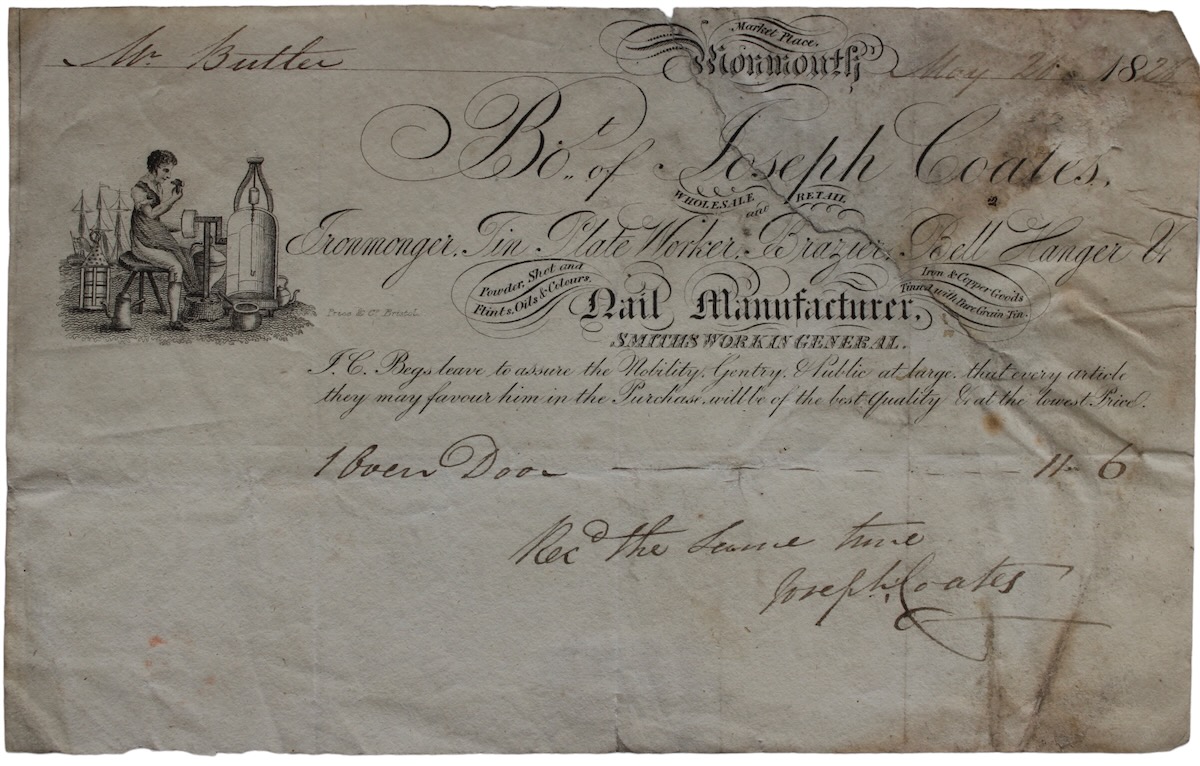 Market Place,
Mr Butler Monmouth May 20 1828
Bt. of Joseph Coates,
WHOLESALE and RETAIL
Ironmonger, Tin Plate Worker, Brazier, Bell Hanger &c
Powder, Shot and
Flints, Oils & Colours,
Nail Manufacturer,
Iron & Copper Goods
Tinned with Pure Grain Tin.
Price & Co. Bristol.
SMITHS WORK IN GENERAL.
J. C. Begs leave to assure the Nobility, Gentry, & Public at large, that every article
they may favour him in the Purchase, will be of the best Quality & at the lowest Price.
1 Oven Door 11 - 6
Recd the same time
Joseph Coates